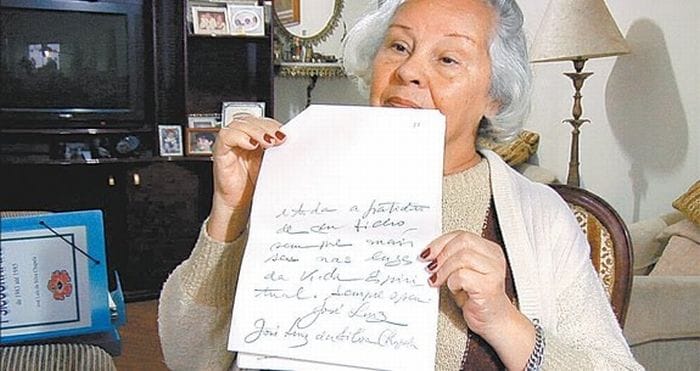 e toda a gratidão
de seu filho
sempre mais
seu nos laços
da Vida Espiri
tual. Sempre o seu
José Luiz
José Luiz da Silva Chapela
de 1983 até 1985
José Luiz da Silva Chapela